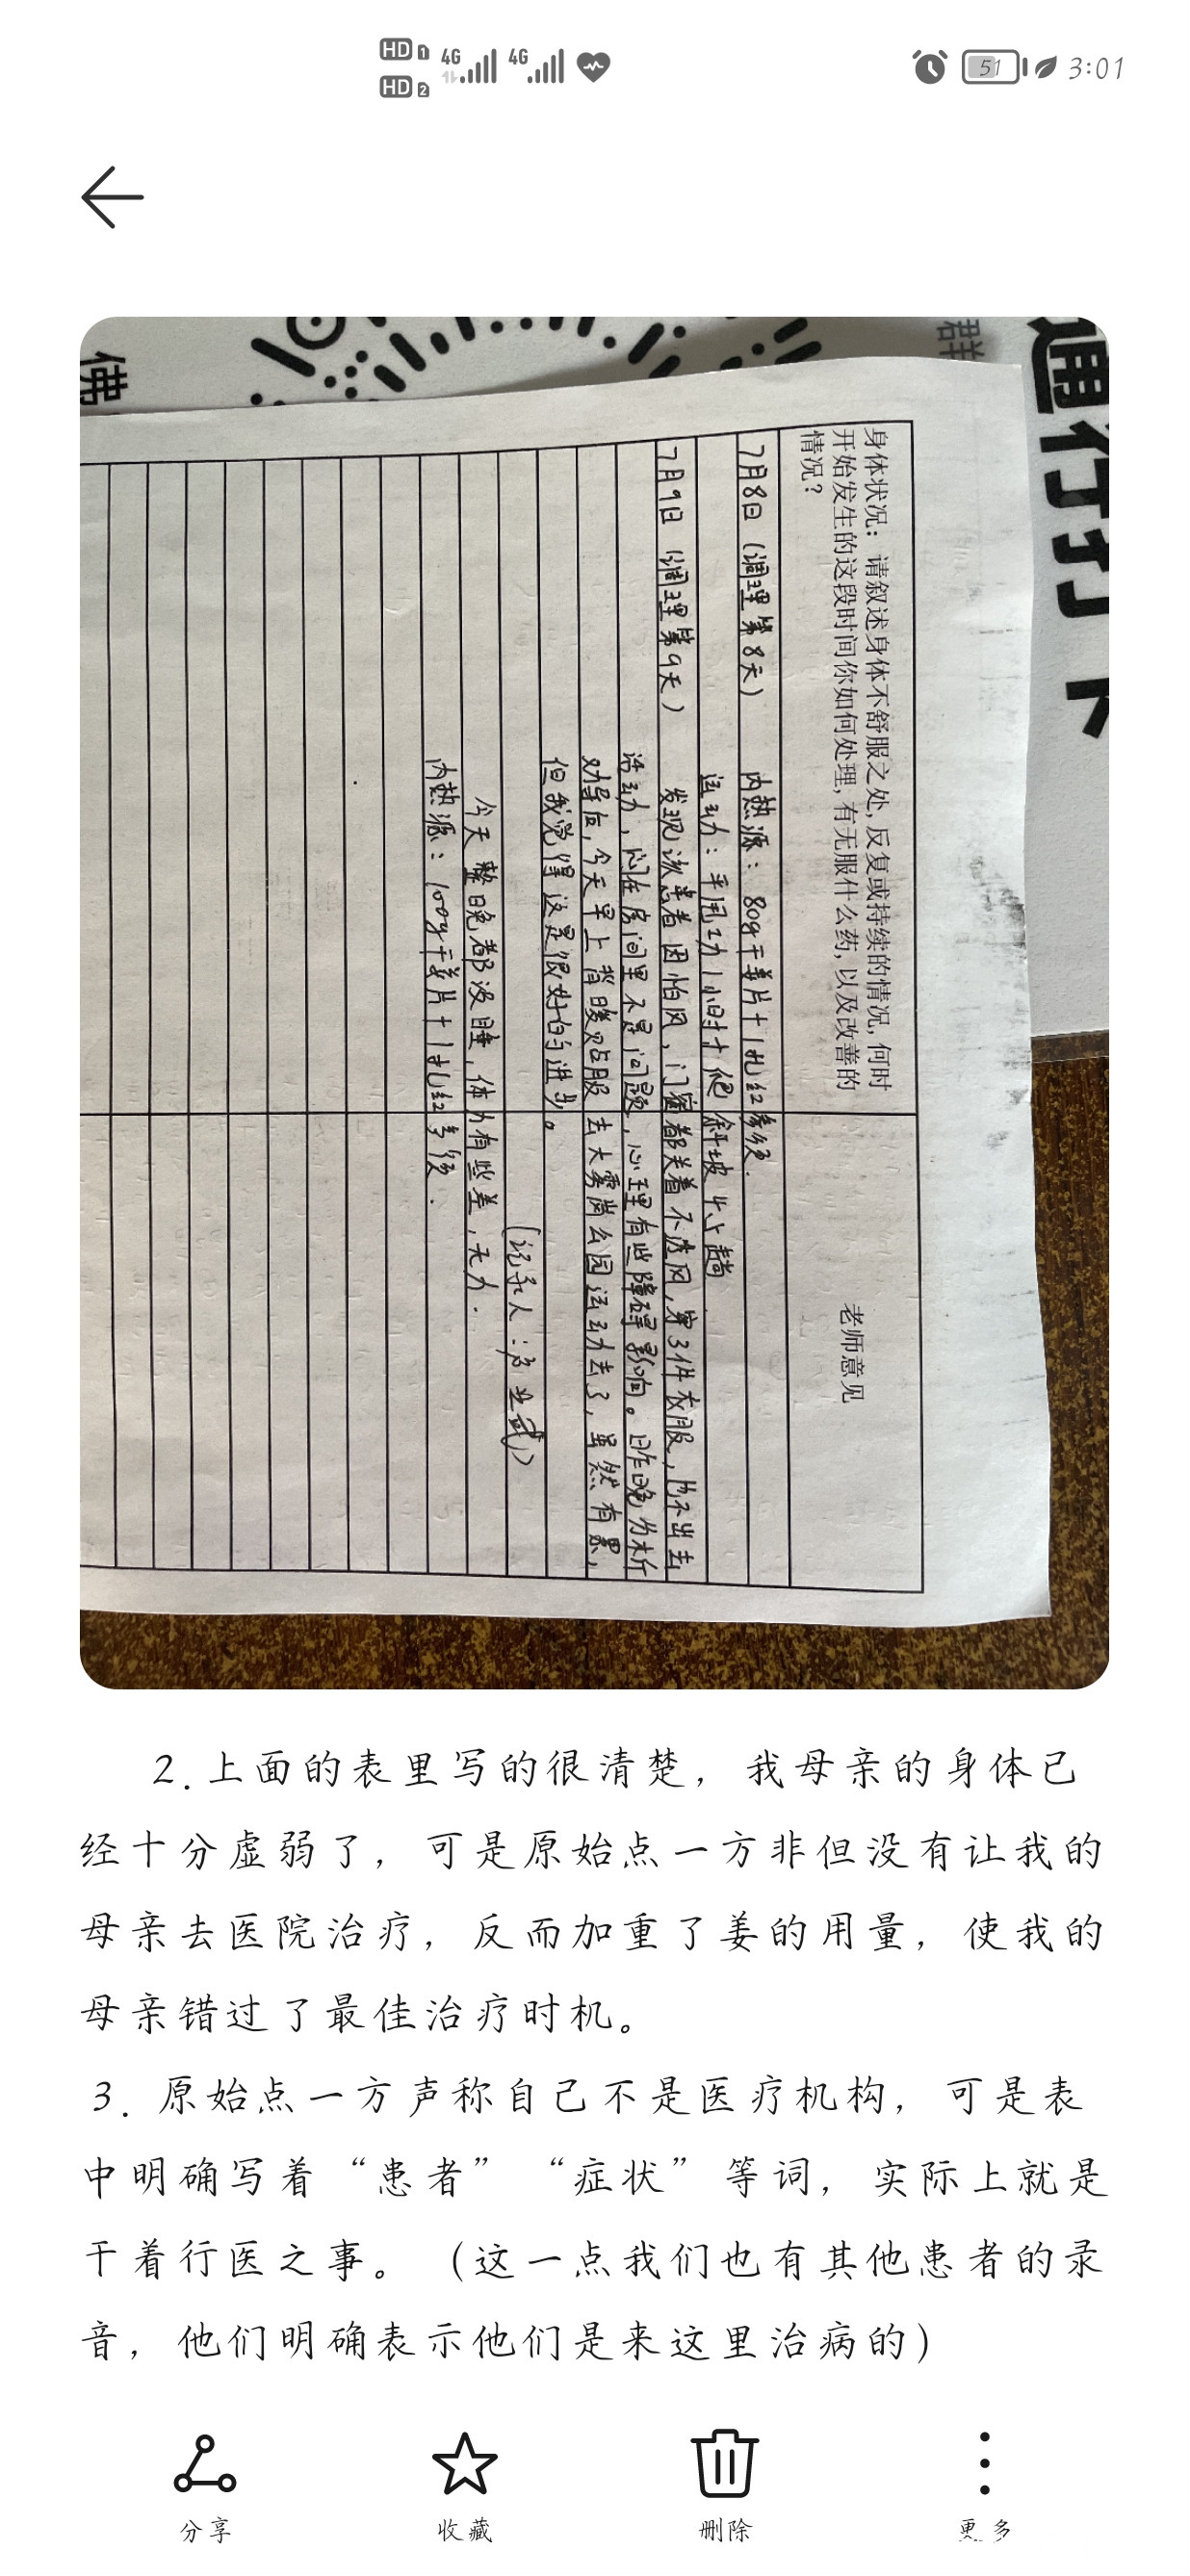 HD 1 4G 4G
HD 2
51 3:01
佛
群
通行打卡
身体状况：请叙述身体不舒服之处，反复或持续的情况，何时
开始发生的这段时间你如何处理，有无服什么药，以及改善的
情况？
老师意见
7月8日（调理第8天） 内热源：80g干姜片+1扎红参须.
运动：平甩功1小时+爬斜坡
7月9日（调理第9天） 发现该患者因怕风，门窗都关着不透风，穿3件衣服，也不出去
活动，闷在房间里不是问题，心理有些障碍影响。昨晚分析
劝导后，今天早上背暖贴服去大雾岗公园运动去了，虽然有累，
但我觉得这是很好的进步。
（记录人：
今天整晚都没睡，体力有些差，无力.
内热源：100g干姜片+1扎红参须.
2.上面的表里写的很清楚，我母亲的身体已
经十分虚弱了，可是原始点一方非但没有让我的
母亲去医院治疗，反而加重了姜的用量，使我的
母亲错过了最佳治疗时机。
3. 原始点一方声称自己不是医疗机构，可是表
中明确写着“患者”“症状”等词，实际上就是
干着行医之事。（这一点我们也有其他患者的录
音，他们明确表示他们是来这里治病的）
分享 收藏 删除 更多